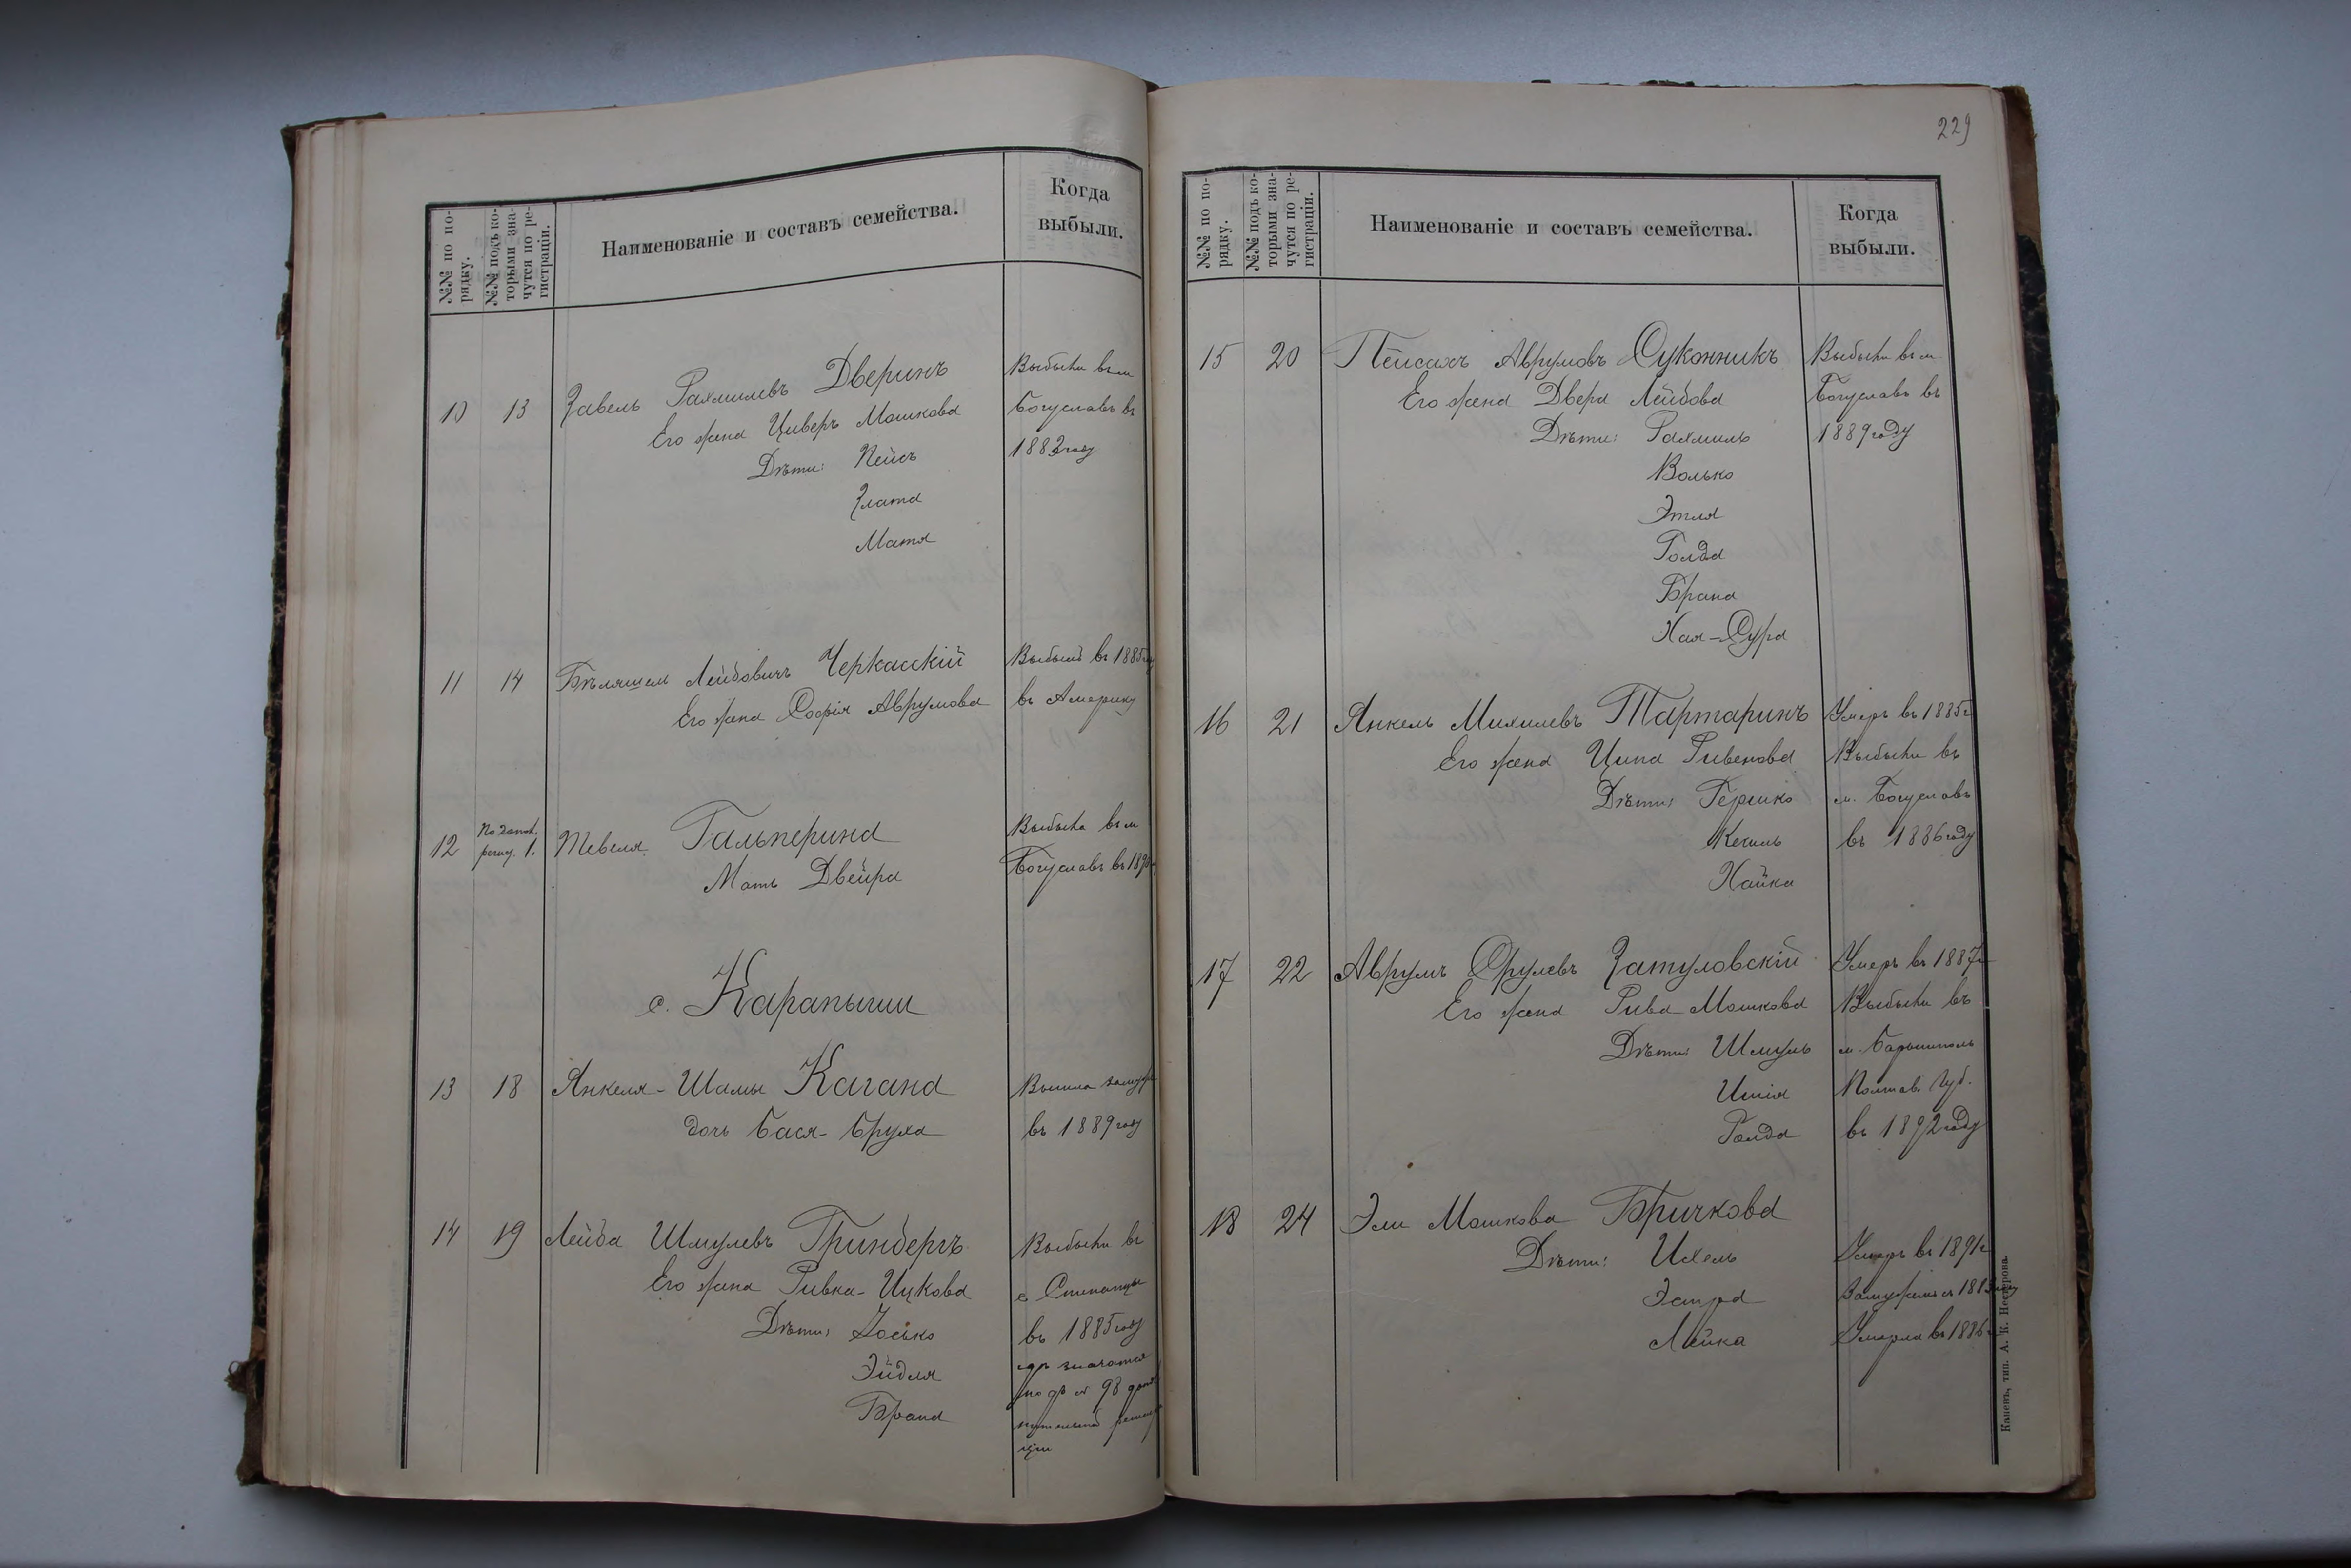 №№ по по-
рядку.
№№ подъ ко-
торыми зна-
чутся по ре-
гистраціи.
Наименованіе и составъ семейства.
Когда
выбыли.
10 13 Завель Рахмилевъ Дверинъ
Его жена Циверъ Мошкова
Дѣти: Пейсъ
Злата
Матя
Выбыли въ м
Богуславъ въ
1882 году
11 14 Лейбовичъ Черкасскій
Его жена Софія Аврумова
Выбылъ въ 1885
въ Америку
12 По допол. регис. 1. Тевеля Гальперина
Мать Двейра
Выбыла въ м
Богуславъ въ
с. Карапыши
13 18 Янкеля-Шамы Кагана
дочь Бася-Бруха
Вышла замужъ
въ 1889 году
14 19 Лейба Шмулевъ Гринбергъ
Его жена Ривка-Ицкова
Дѣти: Іосько
Эйдля
Брана
Выбыли въ
с Степанцы
въ 1885 году
гдѣ значатся
по № 98
229
№№ по по-
рядку.
№№ подъ ко-
торыми зна-
чутся по ре-
гистраціи.
Наименованіе и составъ семейства.
Когда
выбыли.
15 20 Пейсахъ Аврумовъ Суконникъ
Его жена Двера Лейбова
Дѣти: Рахмиль
Волько
Этля
Голда
Брана
Хая-Сура
Выбыли въ м
Богуславъ въ
1889 году
16 21 Янкель Михилевъ Тартаринъ
Его жена Ципа Ривенова
Дѣти: Гершко
Кесиль
Хайка
Умеръ въ 1885 г
Выбыли въ
м. Богуславъ
въ 1886 году
17 22 Аврумъ Срулевъ Затуловскій
Его жена Рива Мошкова
Дѣти: Шмуль
Ишія
Голда
Умеръ въ 1887 г
Выбыли въ
м. Барышполь
Полтав. Губ.
въ 1892 году
18 24 Эли Мошкова Бричкова
Дѣти: Ихель
Эстра
Лейка
Умеръ въ 1891 г
Замужемъ съ
Умерла въ 1886
Каневъ, тип. А. К. Нестерова.